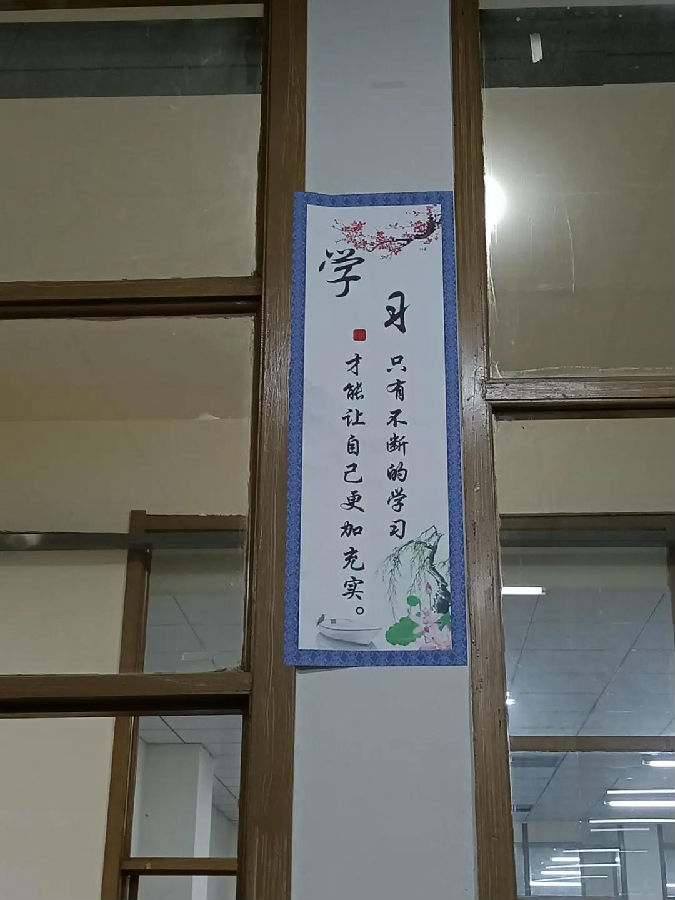 学习
只有不断的学习
才能让自己更加充实。